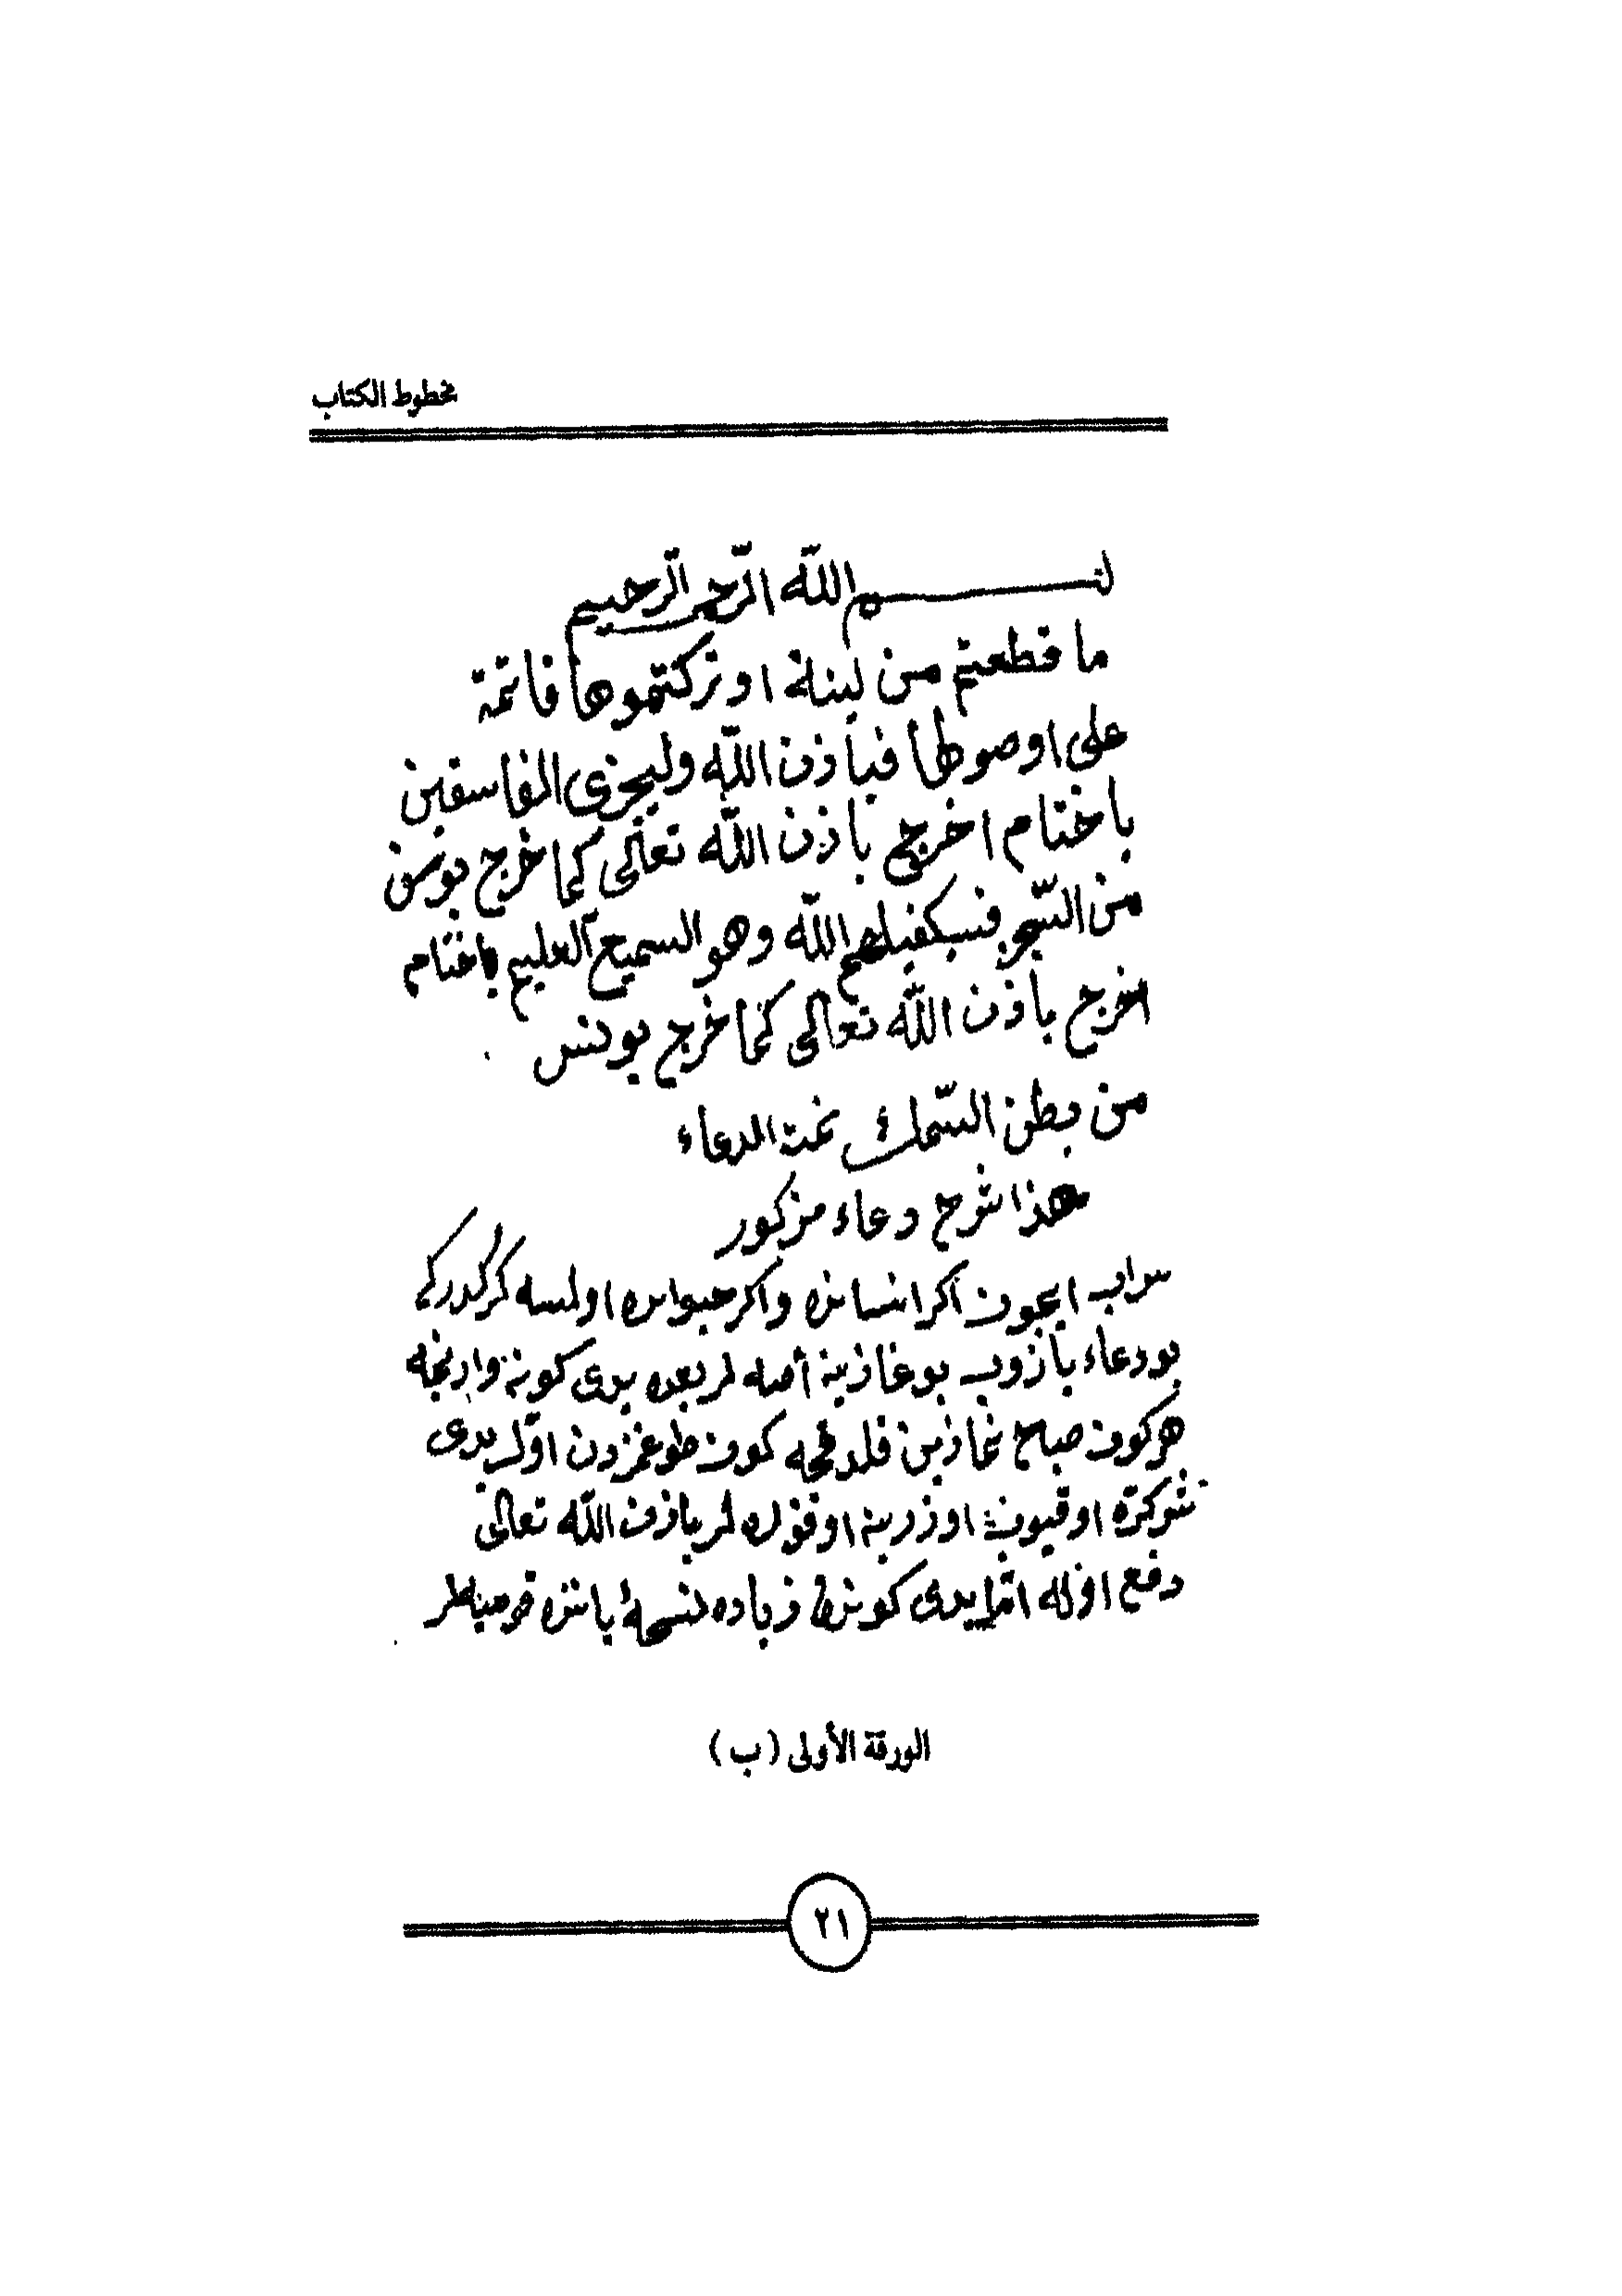 مخطوط الكتاب
بسم الله الرحمن الرحيم
ما قطعتم من لينة او تركتموها قائمة
على اوصولها فبأذن الله وليجزى الفاسقين
باختام اخرج باذن الله تعالى كما خرج يوسف
من السّجن فسيكفيكهم الله وهو السميع العليم باختام
اخرج باذن الله تعالى كما خرج يونس
من بطن السّمك تمت الدعاء
هذا شرح دعاء مزكور
سراب ايچون اكر انسانده واكر حيوانده اولسه كركدركه
بو دعاء يازوب بوغازينه أصه لر بعده يدى كونه وارنجه
هركون صباح نمازين قلدقجه كون طوغمزدن اوّل يدى
شوكرّه اوقيوب اوزرينه اوفوره لر باذن الله تعالى
دفع اوله امّا يدى كوندن زياده نسخه يانده قوميالر
الورقة الأولى (ب)
٢١